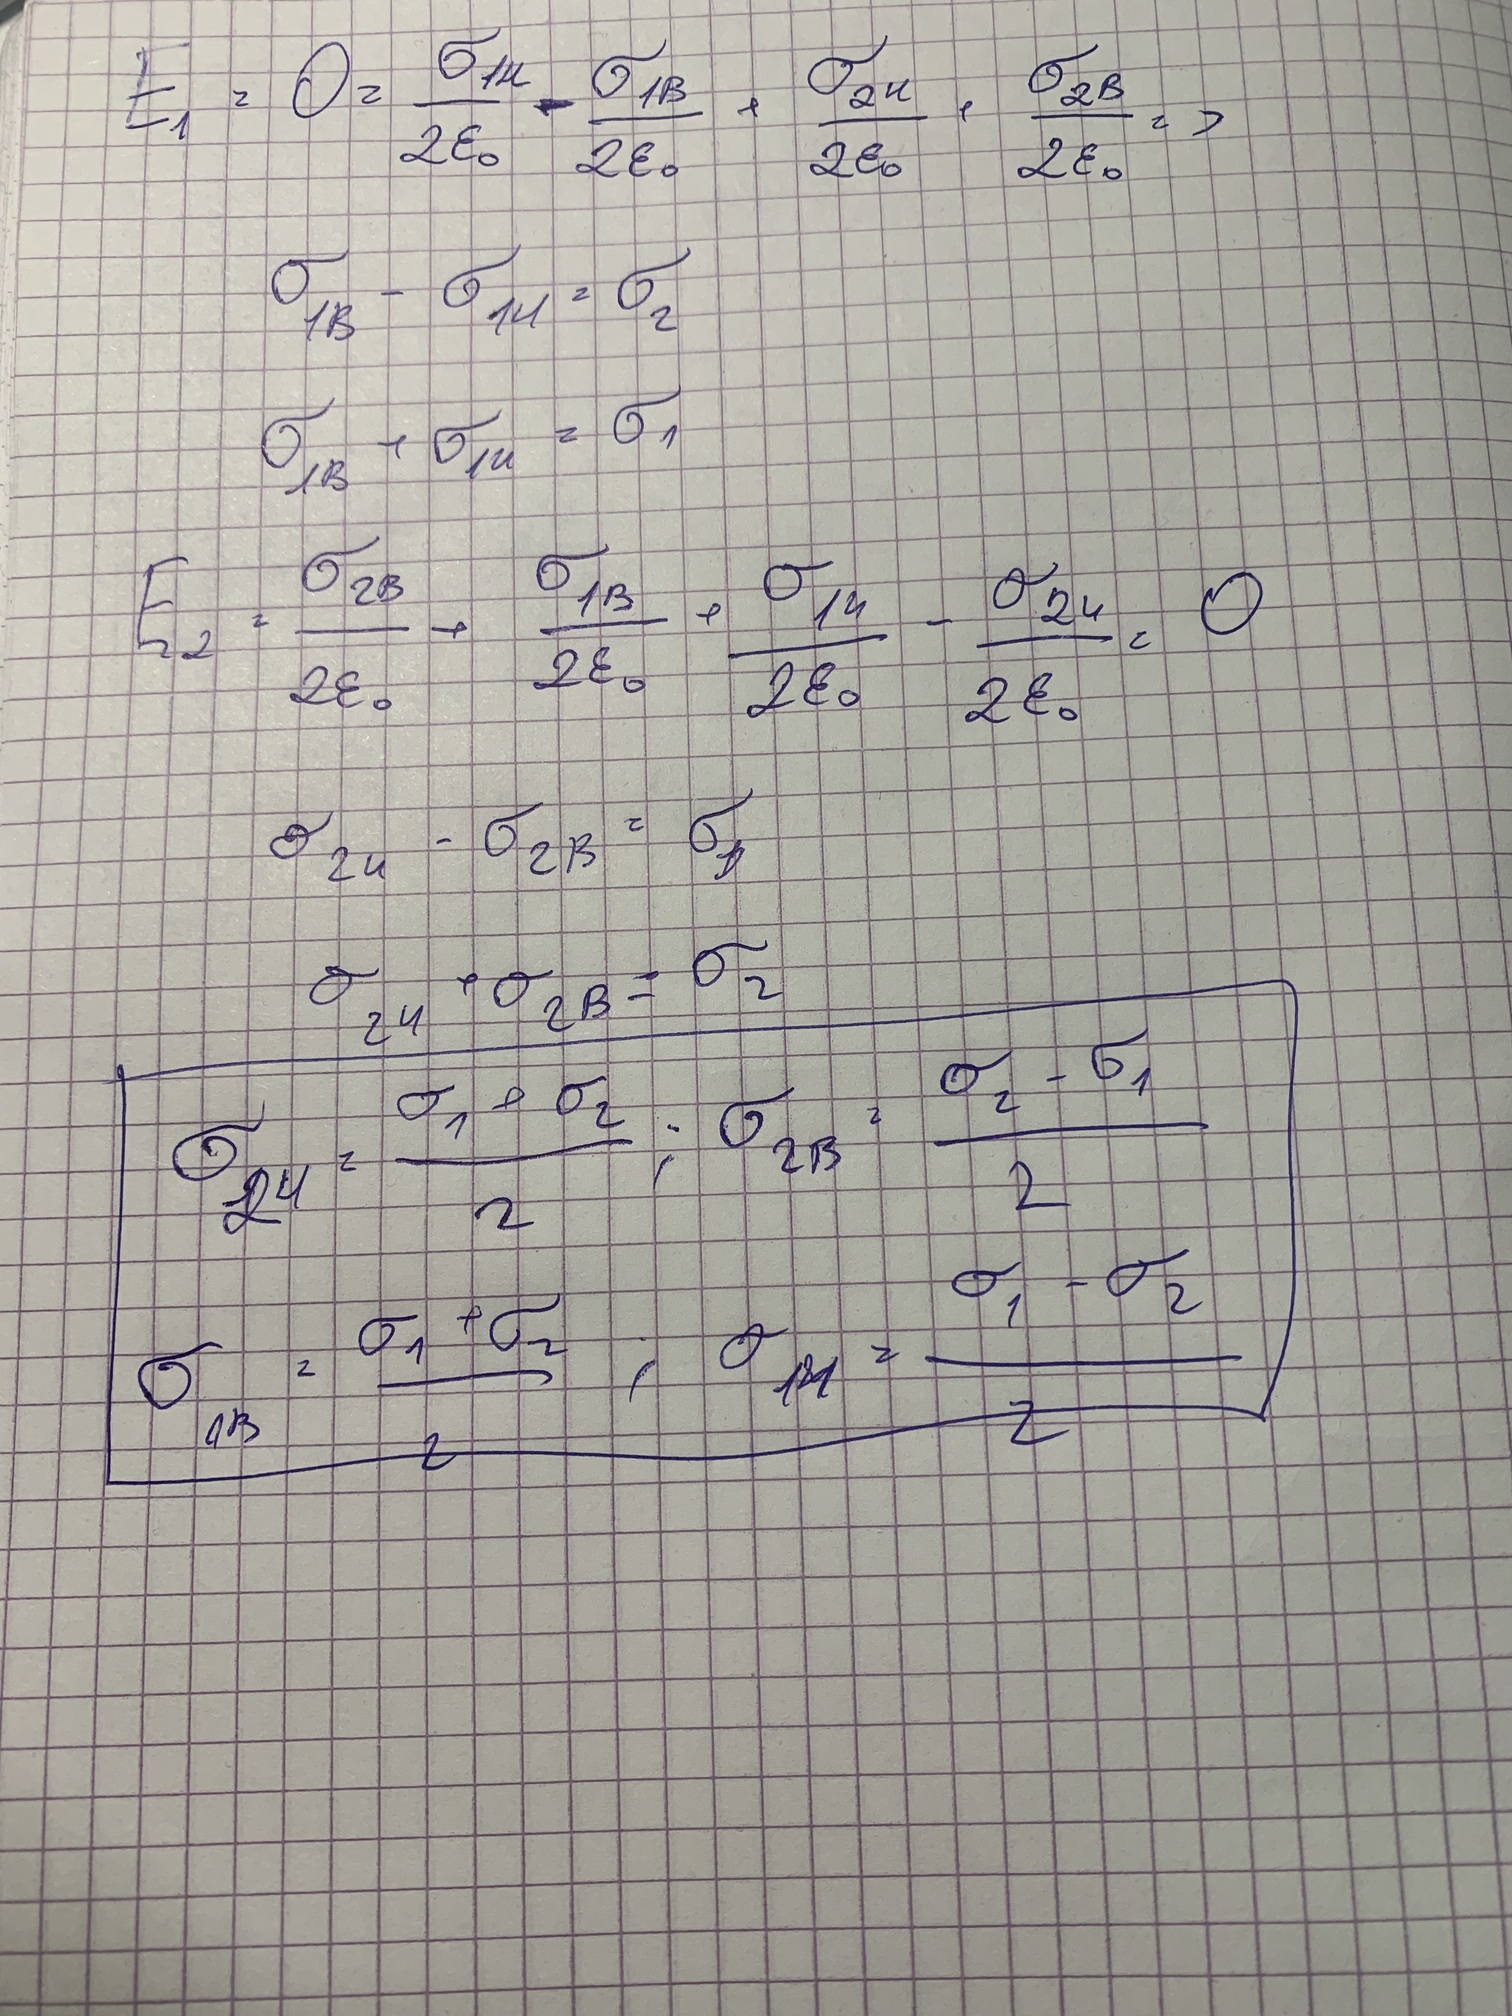 E₁ = 0 = σ₁н/2ε₀ - σ₁в/2ε₀ + σ₂н/2ε₀ + σ₂в/2ε₀ =>
σ₁в - σ₁н = σ₂
σ₁в + σ₁н = σ₁
E₂ = σ₂в/2ε₀ + σ₁в/2ε₀ + σ₁н/2ε₀ - σ₂н/2ε₀ = 0
σ₂н - σ₂в = σ₁
σ₂н + σ₂в = σ₂
σ₂н = (σ₁ + σ₂)/2 ; σ₂в = (σ₂ - σ₁)/2
σ₁в = (σ₁ + σ₂)/2 ; σ₁н = (σ₁ - σ₂)/2